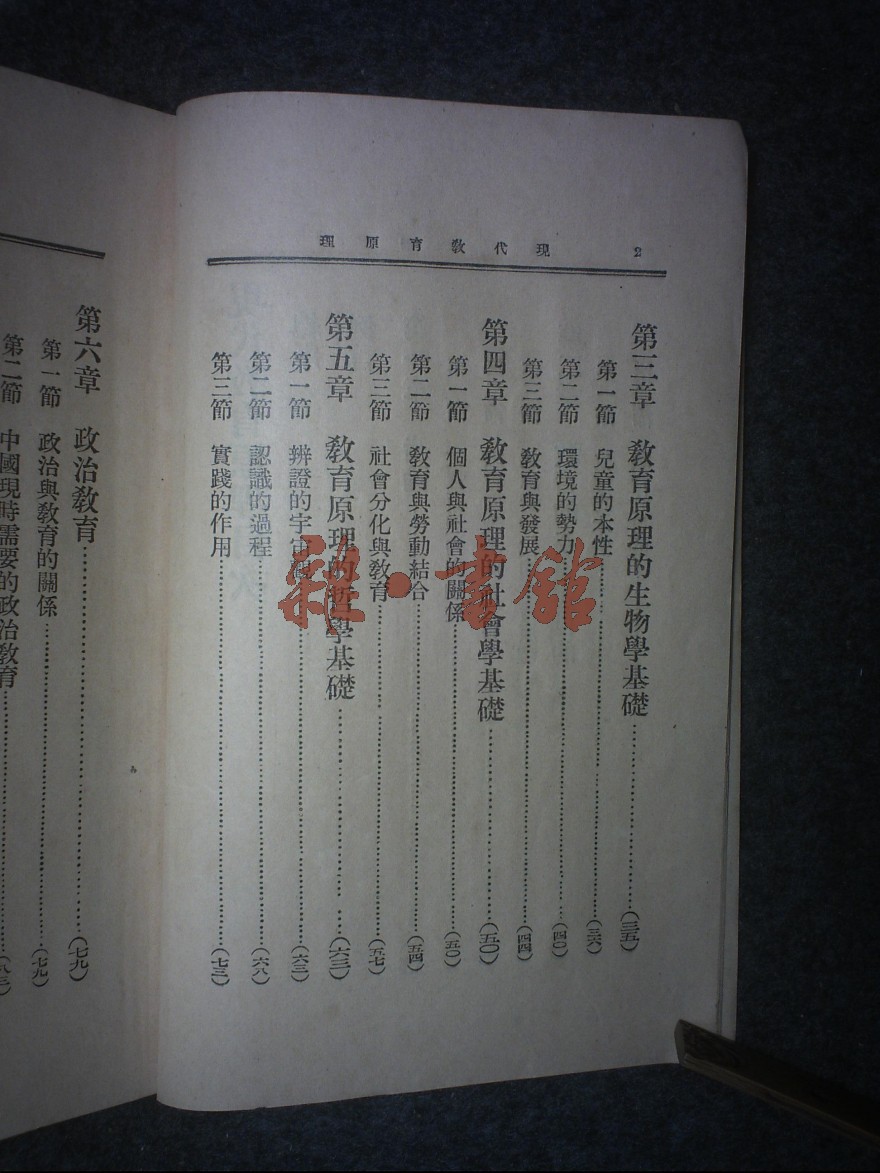 2 現代教育原理
第三章 教育原理的生物學基礎……(三五)
第一節 兒童的本性……(三六)
第二節 環境的勢力……(四〇)
第三節 教育與發展……(四四)
第四章 教育原理的社會學基礎……(五〇)
第一節 個人與社會的關係……(五〇)
第二節 教育與勞動結合……(五四)
第三節 社會分化與教育……(五七)
第五章 教育原理的哲學基礎……(六三)
第一節 辨證的宇宙……(六三)
第二節 認識的過程……(六八)
第三節 實踐的作用……(七三)
第六章 政治教育……(七九)
第一節 政治與教育的關係……(七九)
第二節 中國現時需要的政治教育……
雜·書館